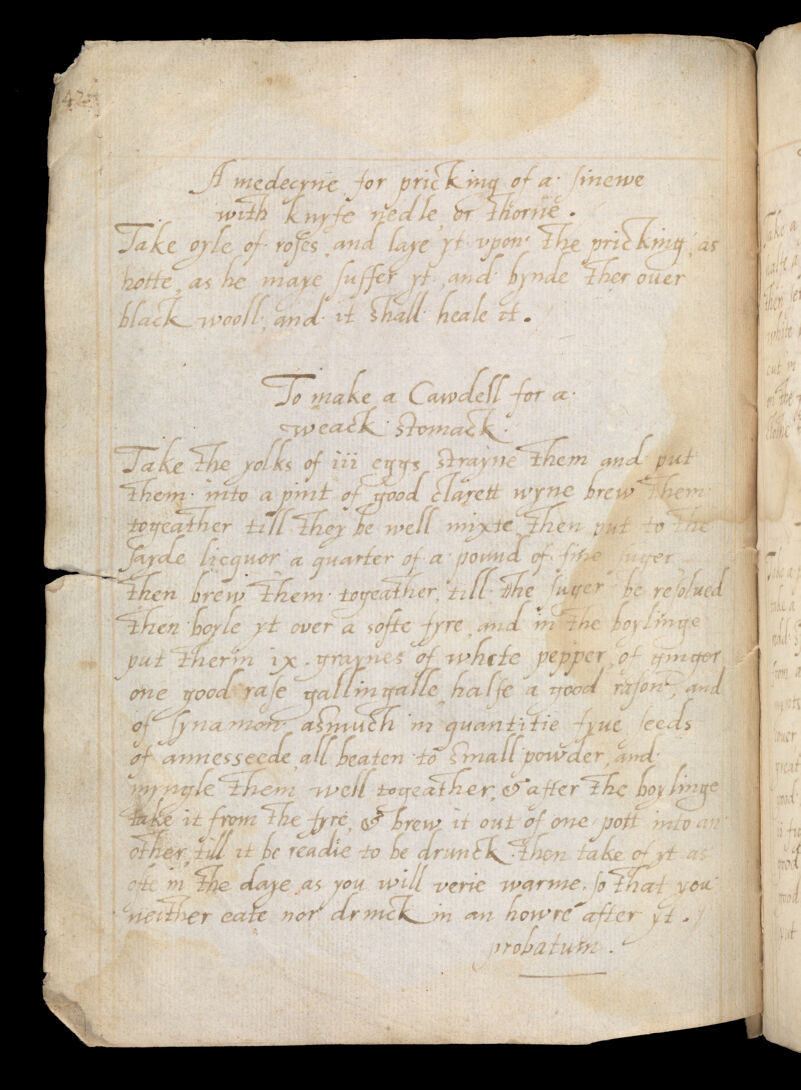 142
A medecyne for pricking of a sinewe
with knyfe nedle or thorne.
Take oyle of roses and laye yt vpon the pricking as
hotte as he maye suffer yt and bynde ther over
black wooll, and it shall heale it.
To make a Cawdell for a
weack stomack.
Take the yolks of iii eggs strayne them and put
them into a pint of good clarett wyne brew them
togeather till they be well mixte, then put to the
sayde licquor a quarter of a pound of fine suger
then brew them togeather, till the suger be resolued
then boyle yt over a softe fyre and in the boylinge
put therin ix. graynes of white pepper, of ginger
one good rase gallingalle halfe a good rason, and
of synamon asmuch in quantitie fyue seeds
of annesseede, all beaten to small powder, and
myngle them well togeather, & after the boylinge
take it from the fyre, & brew it out of one pott into an
other, till it be readie to be drunck. then take of yt as
ofte in the daye as you will verie warme. so that you
neither eate nor drinck in an howre after yt.
probatum.